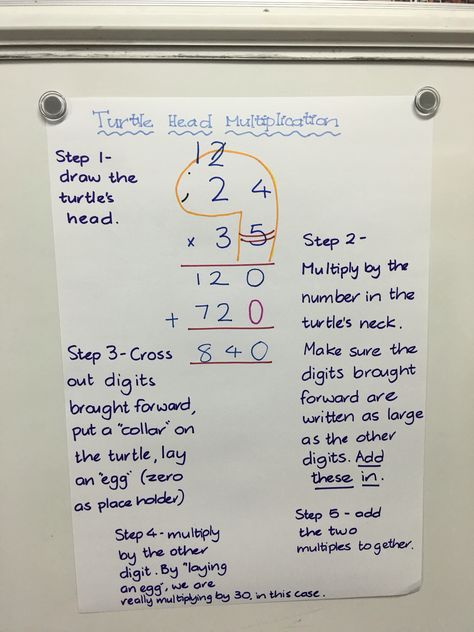 Turtle Head Multiplication
Step 1-
draw the
turtle's
head.
12
24
x 35
120
+ 720
840
Step 2-
Multiply by the
number in the
turtle's neck.
Make sure the
digits brought
forward are
written as large
as the other
digits. Add
these in.
Step 3-Cross
out digits
brought forward,
put a "collar" on
the turtle, lay
an "egg" (zero
as place holder)
Step 4-multiply
by the other
digit. By "laying
an egg", we are
really multiplying by 30, in this case.
Step 5-add
the two
multiples together.